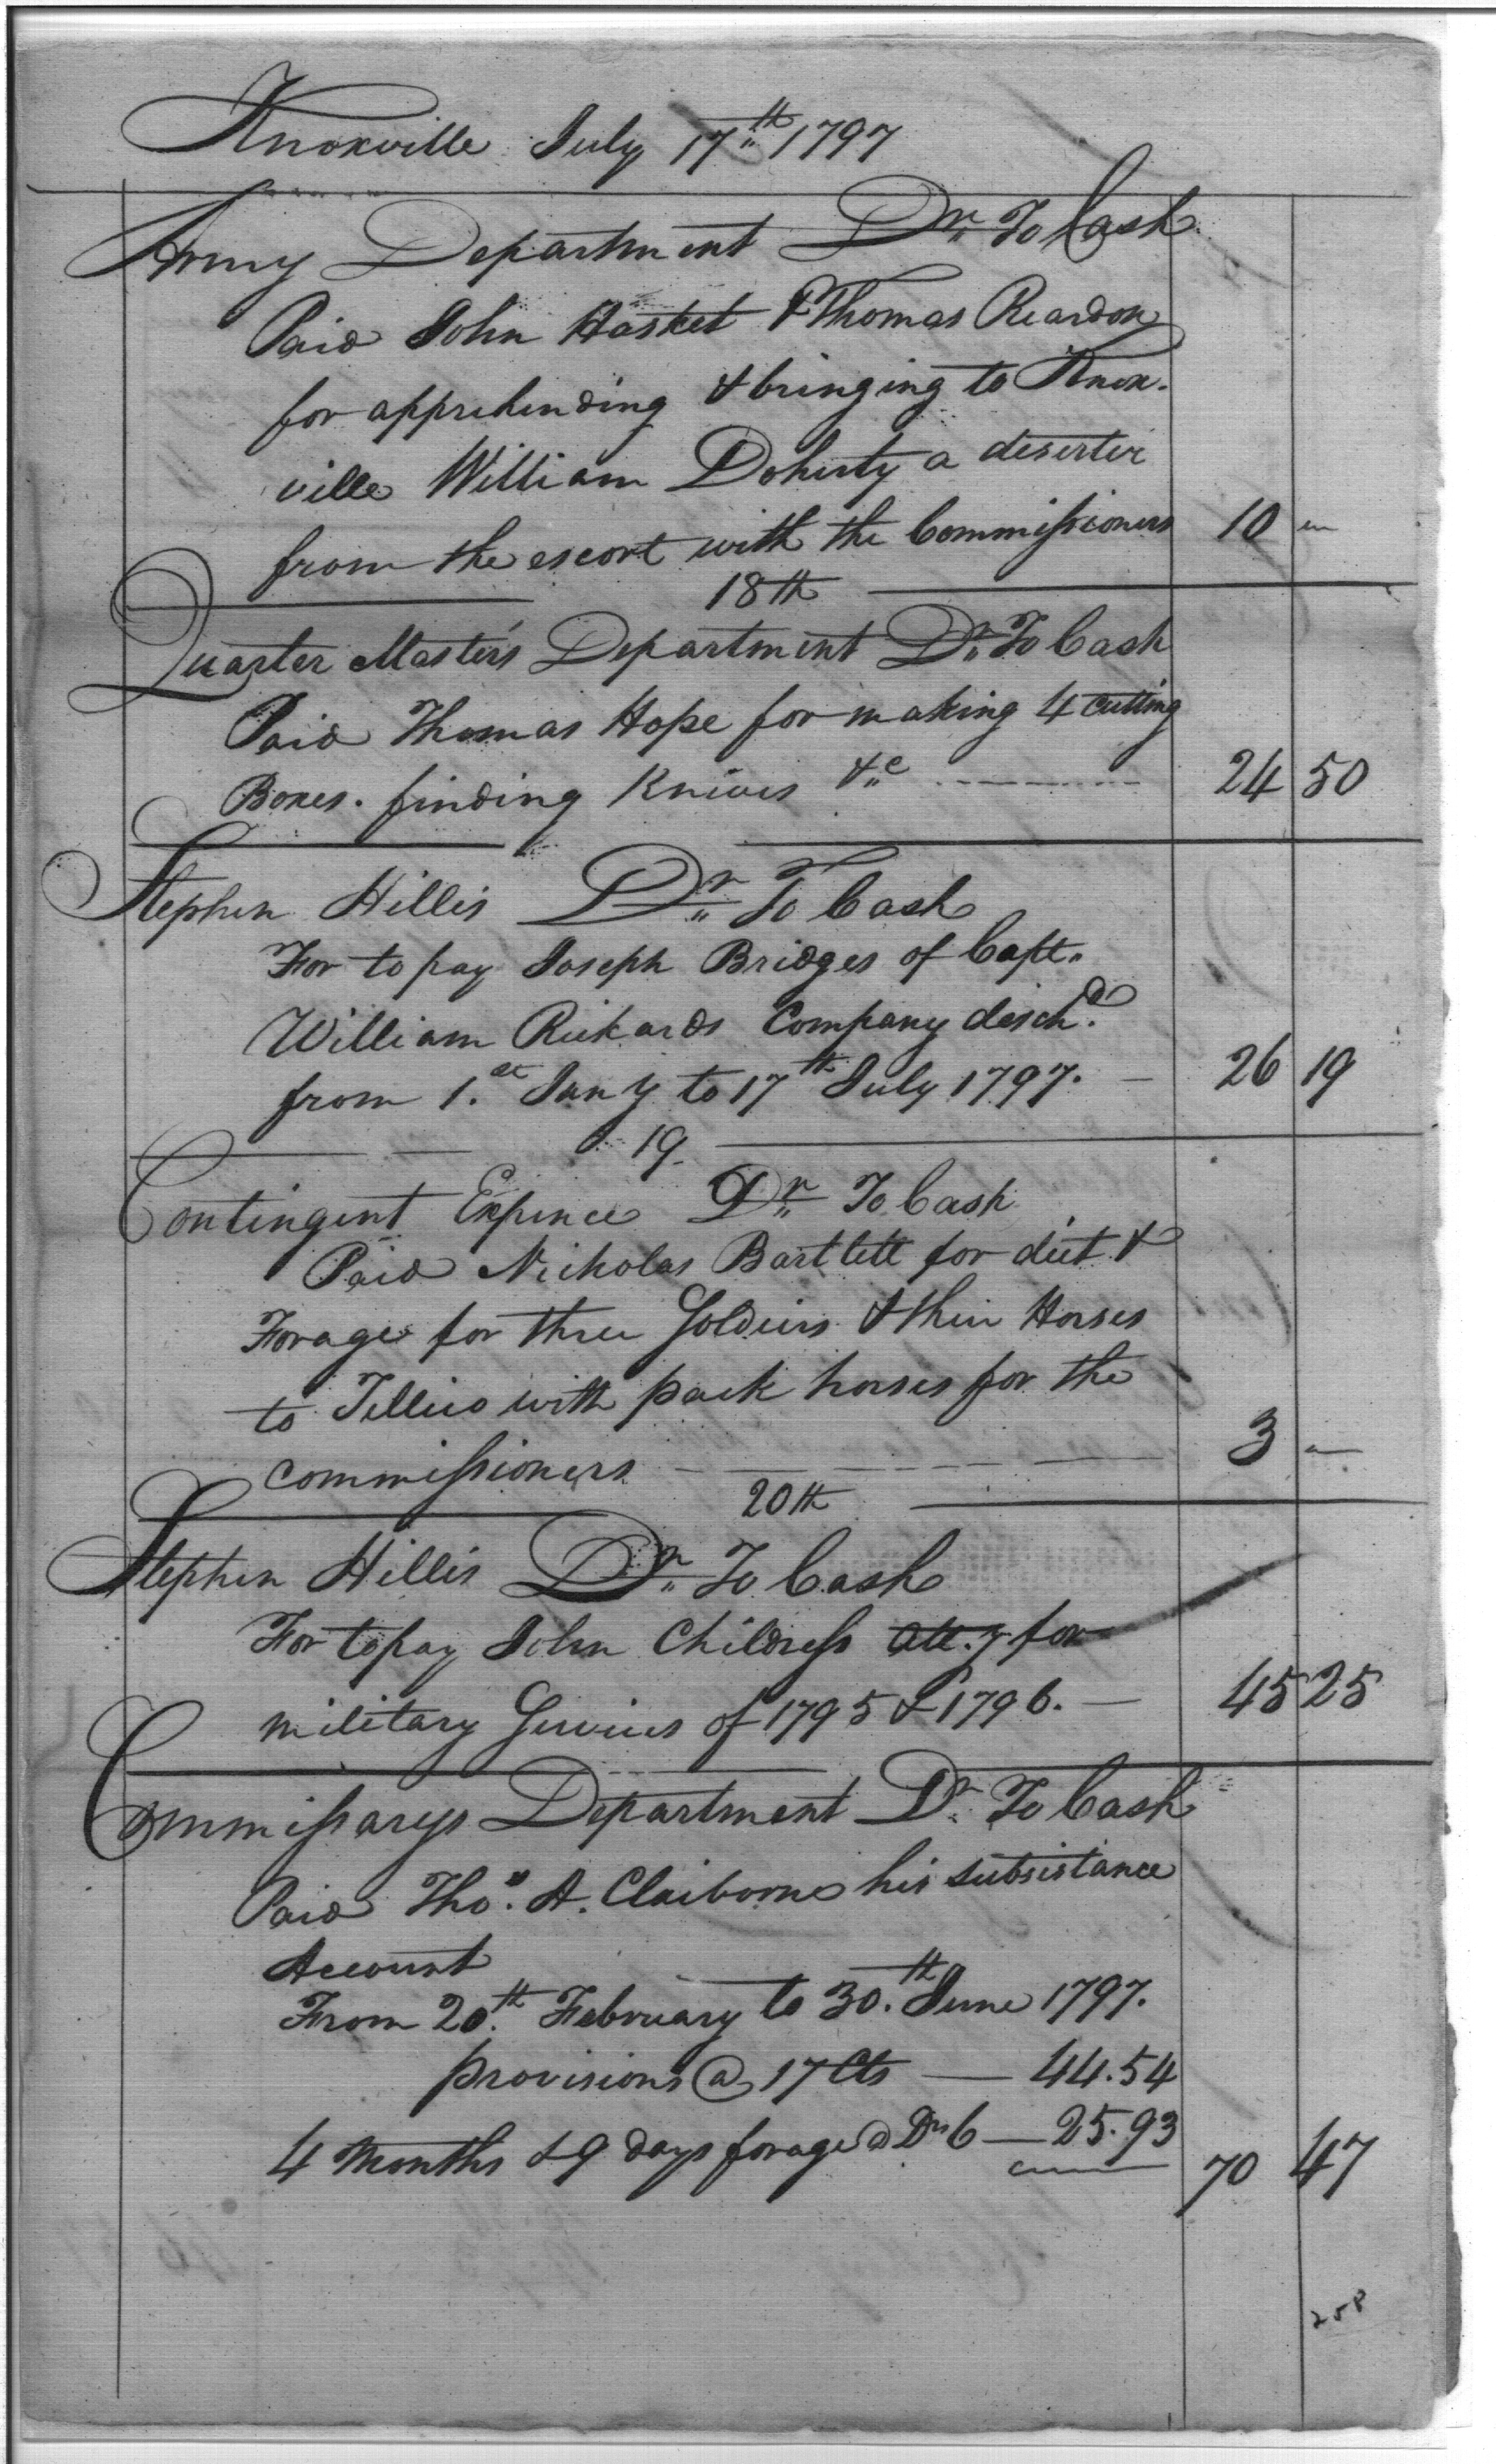 Knoxville July 17th 1797
Army Department Dr. To Cash
Paid John Hasket & Thomas Reardon
for apprehending & bringing to Knox-
ville William Doherty a deserter
from the escort with the Commissioners 10 —
18th
Quarter Master's Department Dr. To Cash
Paid Thomas Hope for making 4 cutting
Boxes. finding Knives &c 24 50
Stephen Hillis Dr. To Cash
For to pay Joseph Bridges of Capt.
William Rickards Company disch.d
from 1.st Jany to 17th July 1797. — 26 19
19
Contingent Expence Dr. To Cash
Paid Nicholas Bartlett for diet &
Forage for three Soldiers & their Horses
to Tellico with pack horses for the
commissioners 3 —
20th
Stephen Hillis Dr. To Cash
For to pay John Childress Att.y for
military Services of 1795 & 1796. — 45 25
Commissarys Department Dr. To Cash
Paid Tho.s A. Claiborne his subsistance
Account
From 20.th February to 30.th June 1797.
provisions @ 17 Cts — 44.54
4 Months & 9 days forage @ Drs 6 — 25.93 70 47
258